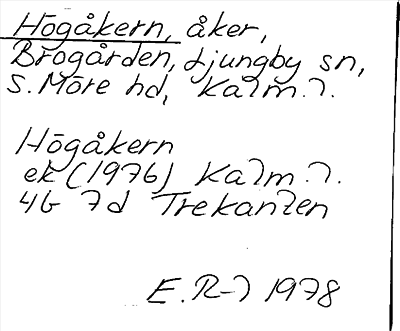 Högåkern, åker,
Brogården, Ljungby sn,
S. Möre hd, Kalm. l.
Högåkern
ek (1976) Kalm. l.
4G 7d Trekanten
E. R-l 1978